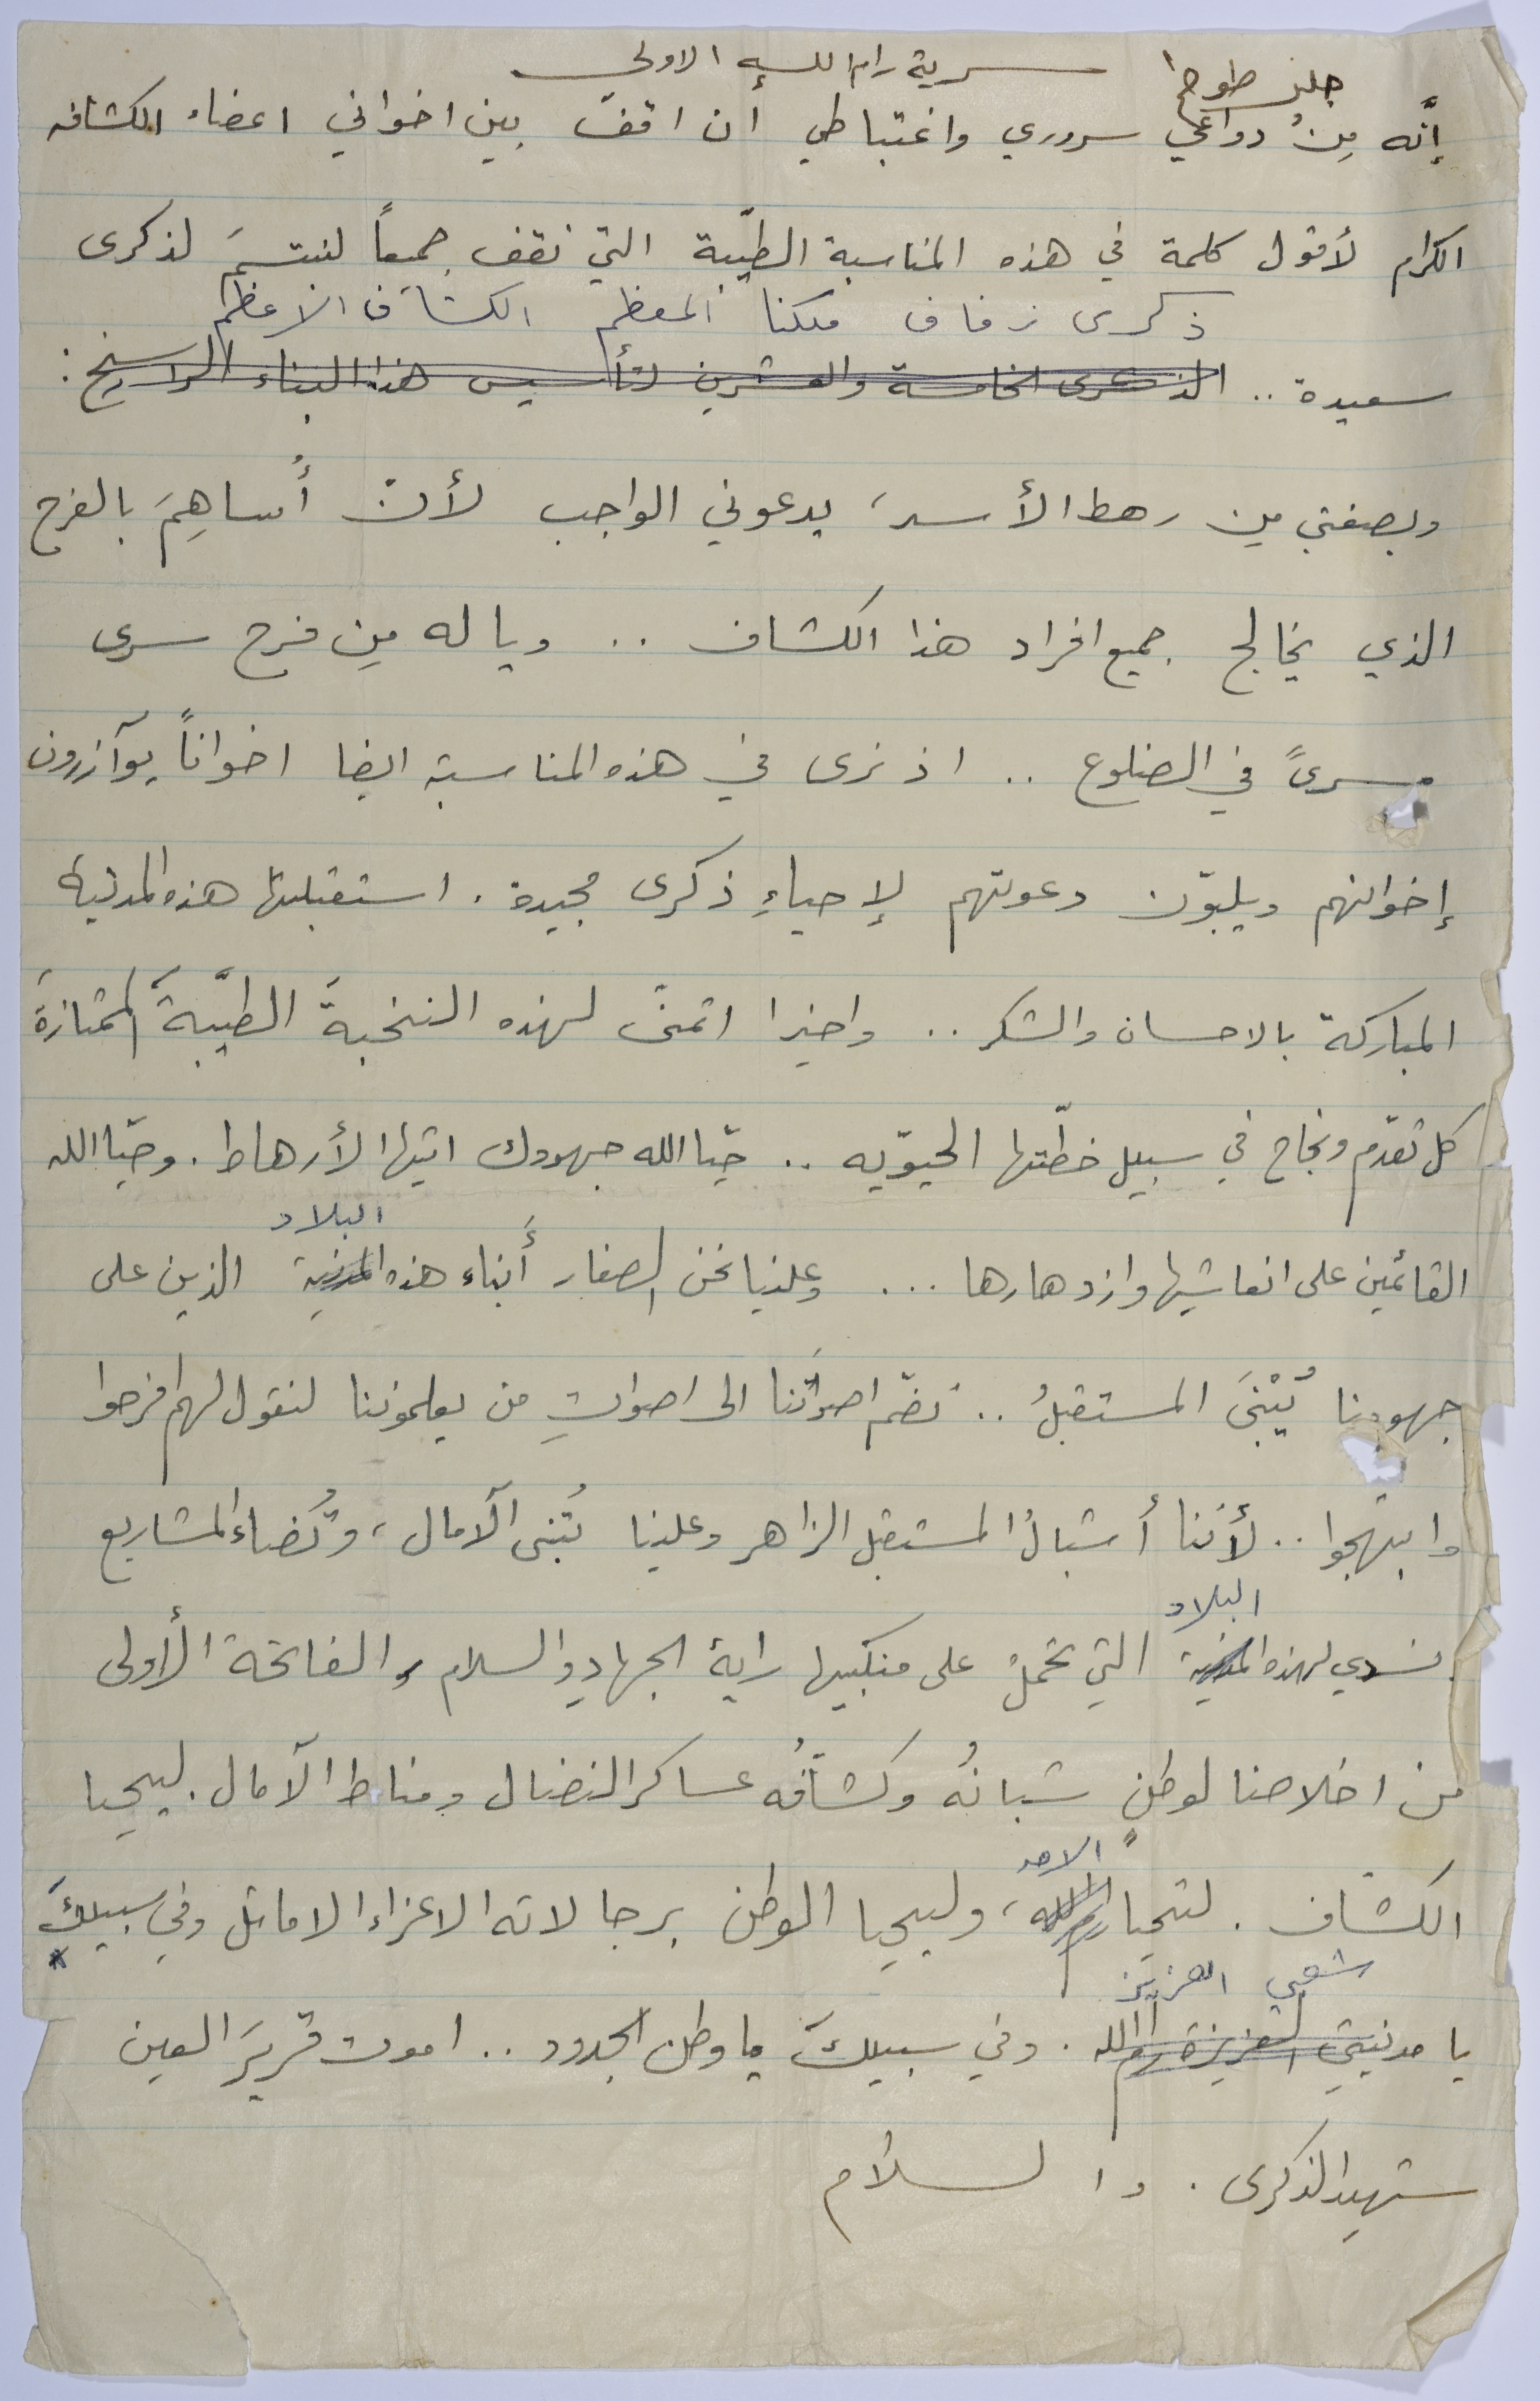 سرية رام الله الاولى
جليل طوطح
إنّه مِنْ دواعي سروري واغتباطي أن اقفَ بين اخواني اعضاء الكشافه
الكرام لأقول كلمة في هذه المناسبة الطيّبة التي نقف جميعاً لنبتسمَ لذكرى
ذكرى زفاف ملكنا المعظم الكشاف الاعظم
سعيدة .. الذكرى الخامسة والعشرين لتأسيس هذا البناء الراسخ :
وبصفتي مِن رهط الأسد، يدعوني الواجب لأن أُساهِمَ بالفرح
الذي يخالج جميع افراد هذا الكشاف .. ويا له مِن فرح سرى
مسرىً في الضلوع .. اذ نرى في هذه المناسبة ايضا اخواناً يوآزرون
إخوانهم ويلبّون دعوتهم لإحياءِ ذكرى مجيدة . استقبلتها هذه المدينة
المباركة بالاحسان والشكر .. واخيرا اتمنّى لهذه النخبةَ الطيّبةَ الممتازةَ
كل تقدّم ونجاح في سبيل خطّتها الحيوّيه .. حيّا الله جهودك ايتها الأرهاط . وحيّا الله
القائمين على انعاشها وازدهارها ... وعلينا نحن الصغار أَبناء هذه المدينة الذين على
البلاد
جهودنا يُبْنَى المستقبلُ .. نضمّ اصواتَنا الى اصواتِ من يعلموننا لنقول لهم افرحوا
وابتهجوا .. لأننا أشبالُ المستقبل الزاهر وعلينا تُبنى الآمال ، وتُضاءُ المشاريع
البلاد
نسدي لهذه المدينة التي تحملُ على منكبيها راية الجهادِ والسلام والفاتحة الأولى
من اخلاصنا لوطنٍ شبانُه وكشافُه عساكر النضال ومناط الآمال . ليحيا
الكشاف . لتحيا رام الله ، وليحيا الوطن برجالاته الاعزاء الاماثل وفي سبيلكِ
شعبي العزيز
يا مدينتي العزيزة رام الله . وفي سبيلكَ يا وطن الجدود .. اموت قريرَ العين
شهيد الذكرى . والسلام